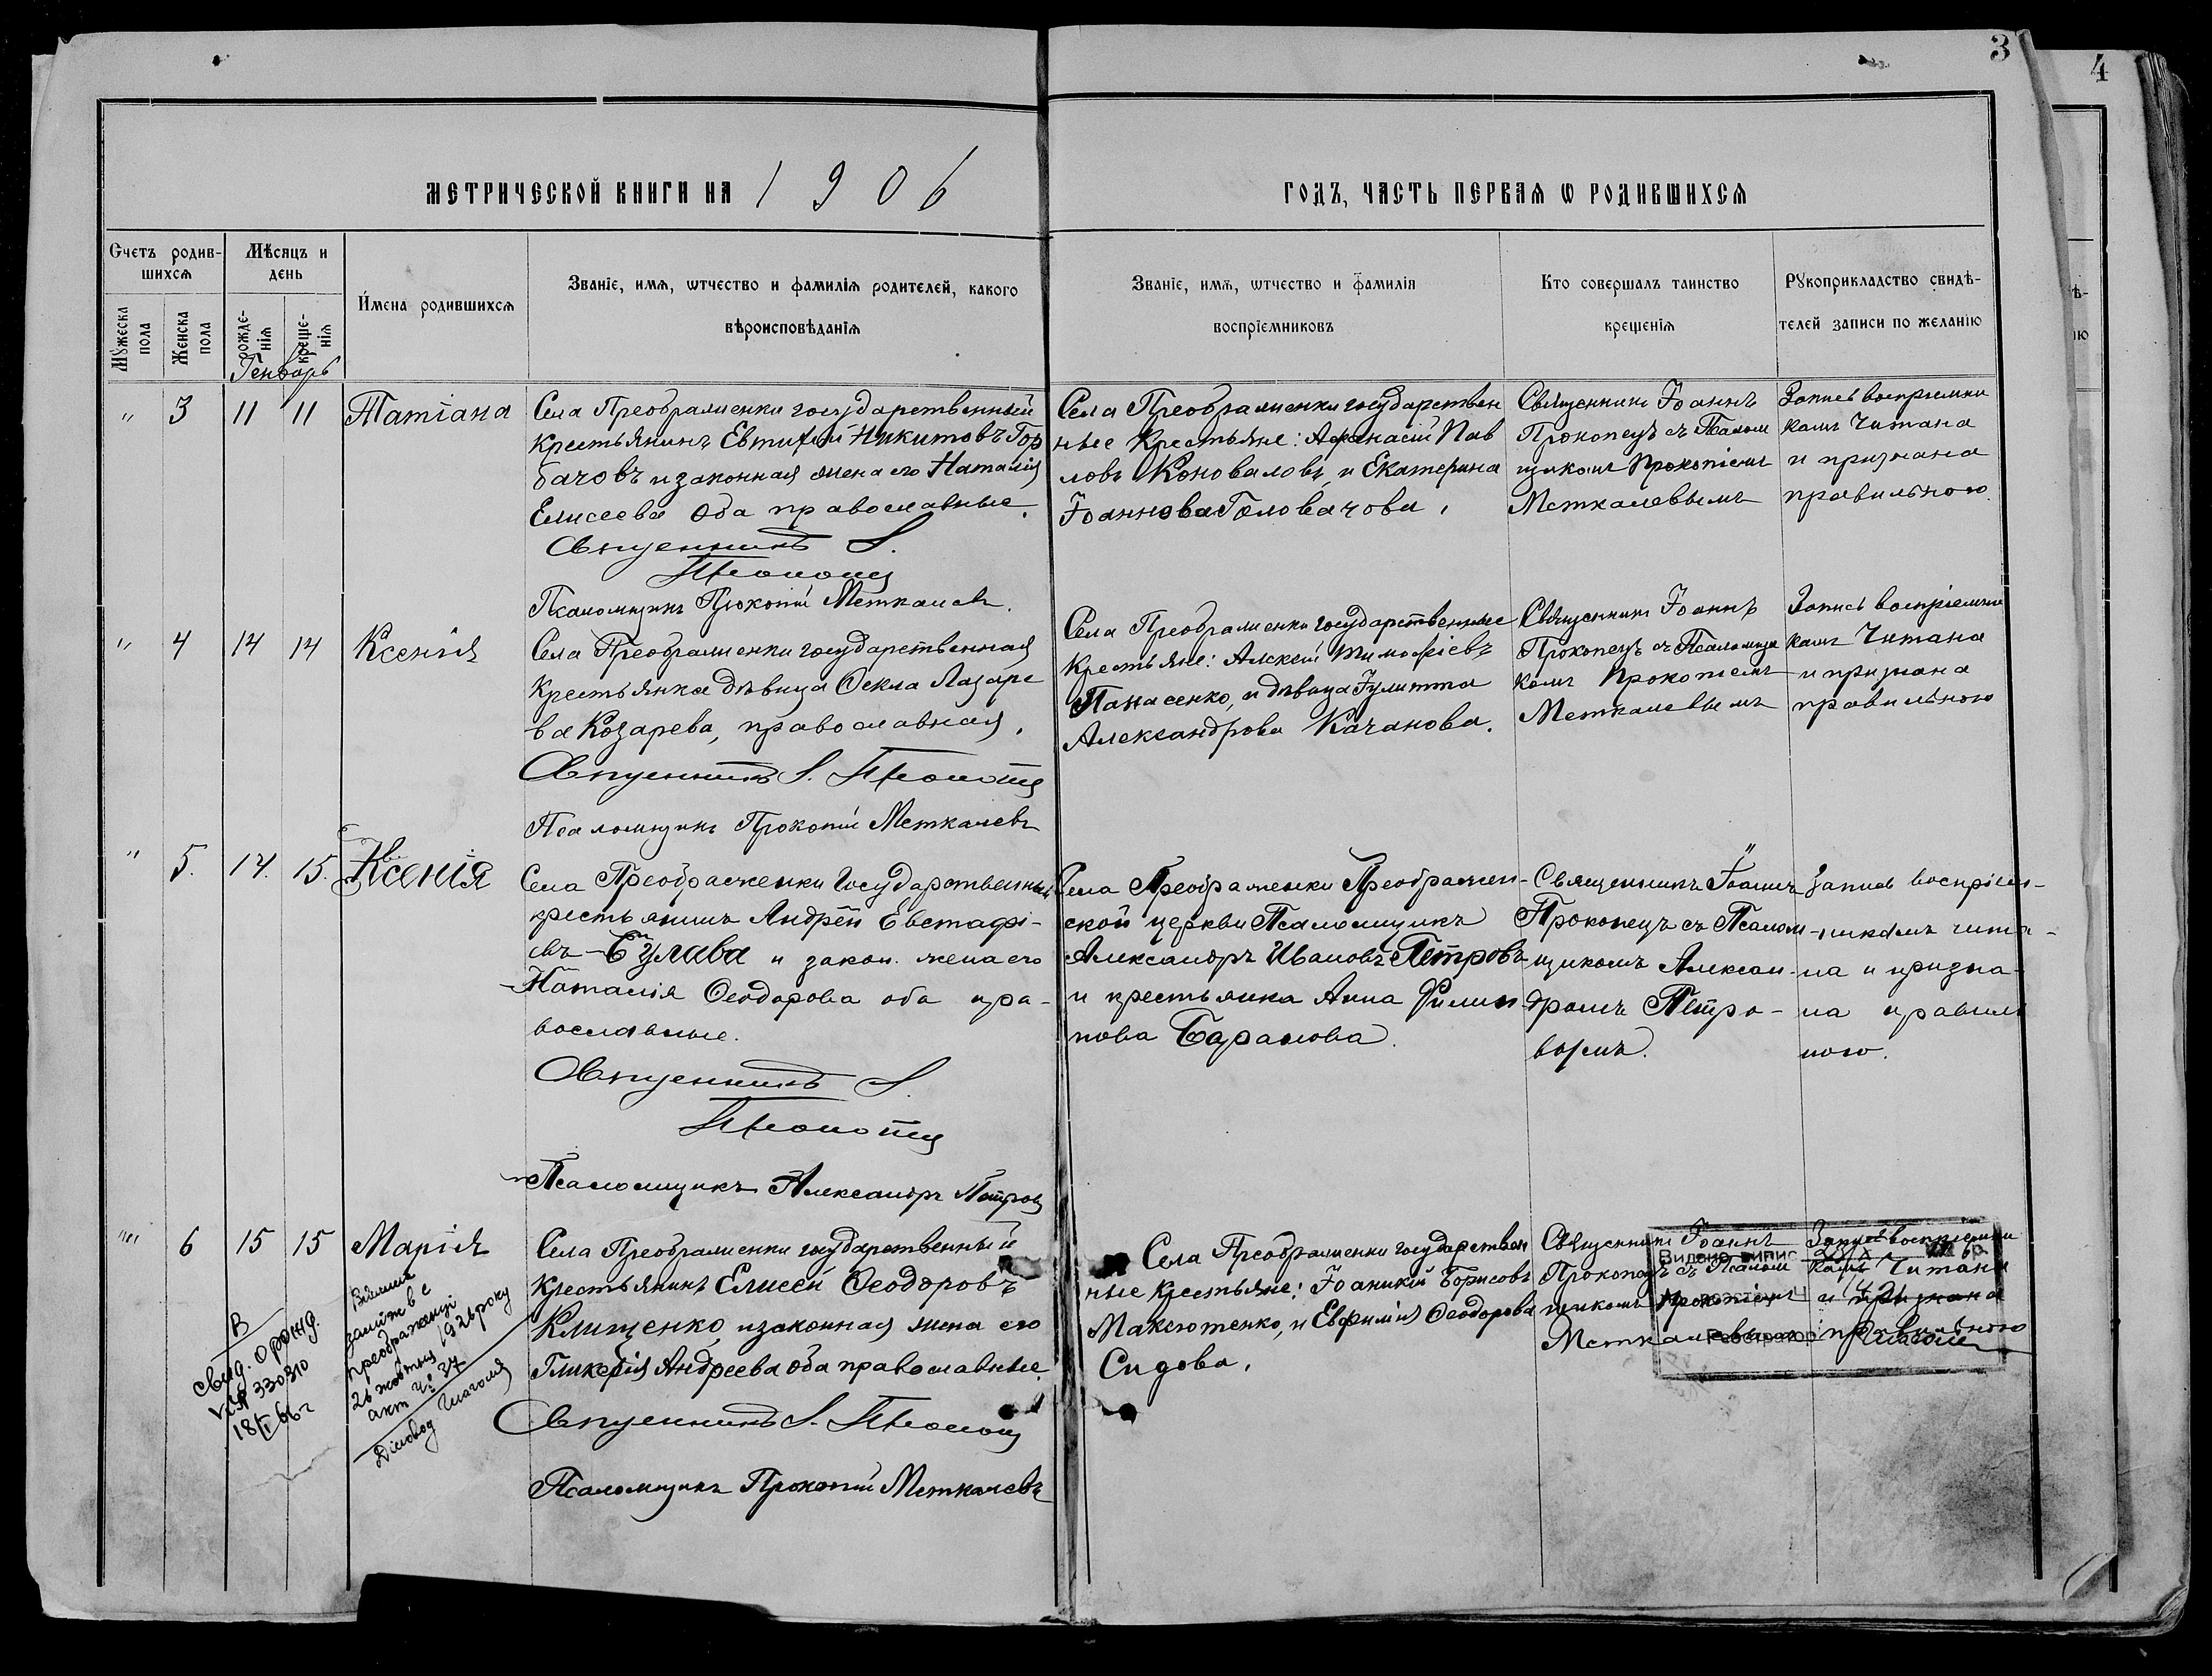 3
4
МЕТРИЧЕСКОЙ КНИГИ НА 1906
ГОДЪ, ЧАСТЬ ПЕРВАЯ Ѡ РОДИВШИХСЯ
Счетъ родив-
шихся
Мѣсяцъ и
день
Имена родившихся
Званіе, имя, ѡтчество и фамилія родителей, какого
вѣроисповѣданія
Мужеска
пола
Женска
пола
рожде-
нія
креще-
нія
Генварь
Званіе, имя, ѡтчество и фамилія
воспріемниковъ
Кто совершалъ таинство
крещенія
Рукоприкладство свидѣ-
телей записи по желанію
" 3 11 11 Татіана
Села Преображенки государственный
Крестьянинъ Евтихій Никитовъ Гор
бачовъ и законная жена его Наталія
Елисеева Оба православные.
Священникъ І.
Прокопец
Псаломщикъ Прокопій Меткалевъ.
Села Преображенки государствен
ные Крестьяне: Афанасій Пав
ловъ Коноваловъ, и Екатерина
Іоаннова Головачова.
Священникъ Іоаннъ
Прокопецъ съ Псалом
щикомъ Прокопіемъ
Меткалевымъ
Запись воспріемни
камъ Читана
и признана
правильною.
" 4 14 14 Ксенія
Села Преображенки государственная
Крестьянка дѣвица Ѳекла Лазаре
ва Козарева, православная.
Священникъ І. Прокопец
Псаломщикъ Прокопій Меткалевъ
Села Преображенки государственные
Крестьяне: Алексій Тимофіевъ
Панасенко, и дѣвица Іулитта
Александрова Качанова.
Священникъ Іоаннъ
Прокопецъ съ Псаломщи
комъ Прокопіемъ
Меткалевымъ
Запись воспріемни
камъ Читана
и признана
правильною
" 5. 14. 15. Ксенія
Села Преображенки Государственный
крестьянинъ Андрей Евстафі-
евъ Булава и закон. жена его
Наталія Ѳеодорова оба пра-
вославные.
Священникъ І.
Прокопец
Псаломщикъ Александръ Петров
Села Преображенки Преображен-
ской церкви Псаломщикъ
Александръ Ивановъ Петровъ
и крестьянка Анна Филип
пова Баранова.
Священникъ Іоаннъ
Прокопецъ съ Псалом-
щикомъ Алексан-
дромъ Петро-
вымъ.
Запись воспріем-
никамъ чита-
на и призна-
на правиль
ною.
" 6 15 15 Марія
Села Преображенки государственный
Крестьянинъ Елисей Ѳеодоровъ
Клищенко, и законная жена его
Гликерія Андреева Оба православные.
Священникъ І. Прокопец
Псаломщикъ Прокопій Меткалевъ
Села Преображенки государствен
ные Крестьяне: Іоаникій Борисовъ
Максютенко, и Евфимія Ѳеодорова
Сидова.
Священникъ Іоаннъ
Прокопецъ съ Псалом
щикомъ Прокопіемъ
Меткалевымъ
Запись воспріемни
камъ Читана
и признана
правильною
Видано випис
В
свид. о рожд.
330310
18/I 66 г
заміж в с
Преображенці
26 жовтня 1926 року
акт Ч: 37
Діловод